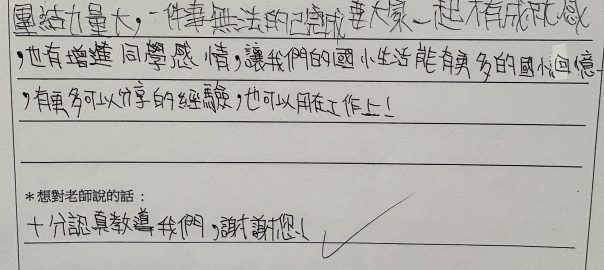 團結力量大,一件事無法自己完成要大家一起才有成就感
,也有增進同學感情,讓我們的國小生活能有更多的國小回憶!
,有更多可以分享的經驗,也可以用在工作上!
*想對老師說的話:
十分認真教導我們,謝謝您!